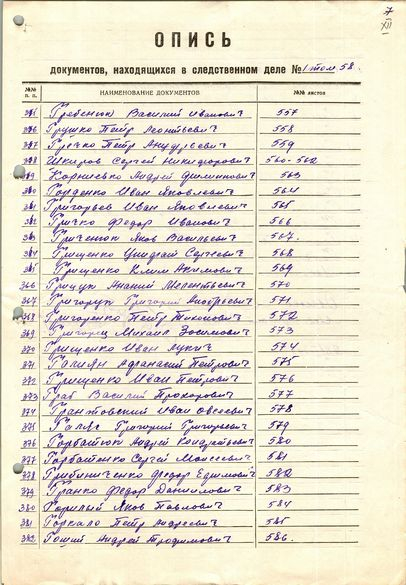 7
XII
ОПИСЬ
документов, находящихся в следственном деле № 1 том 58.
№№ п. п. НАИМЕНОВАНИЕ ДОКУМЕНТОВ №№ листов
Гребенюк Василий Иванович 557
Грушко Пётр Леонтьевич 558
Гречко Пётр Андреевич 559
Шкиров Сергей Никифорович 560-562
Корниенко Андрей 563
Горденко Иван Яковлевич 564
Григорьев Иван Яковлевич 565
Гричко Федор Иванович 566
Гриченюк Яков Васильевич 567.
Грищенко Сергеевич 568
Грищенко Клим Акимович 569
366 Грицук Ананий Мелентьевич 570
367 Григорчук Григорий Андреевич 571
368 Григоренко Пётр Тихонович 572
369 Григорец Михаил Зосимович 573
370 Грищенко Иван Лукич 574
371 Галиян Афанасий Петрович 575
372 Грищенко Иван Петрович 576
373 Граб Василий Прохорович 577
374 Грантовский Иван Овсеевич 578
375 Галяс Григорий Григорьевич 579
376 Горбатюк Андрей Кондратьевич 580
377 Горбатенко Сергей Моисеевич 581
378 Грибиниченко Федор Ефимович 582
379 Гранко Федор Данилович 583
380 Горилый Яков Павлович 584
381 Горкало Пётр Андреевич 585
382 Гоший Андрей Трофимович 586.